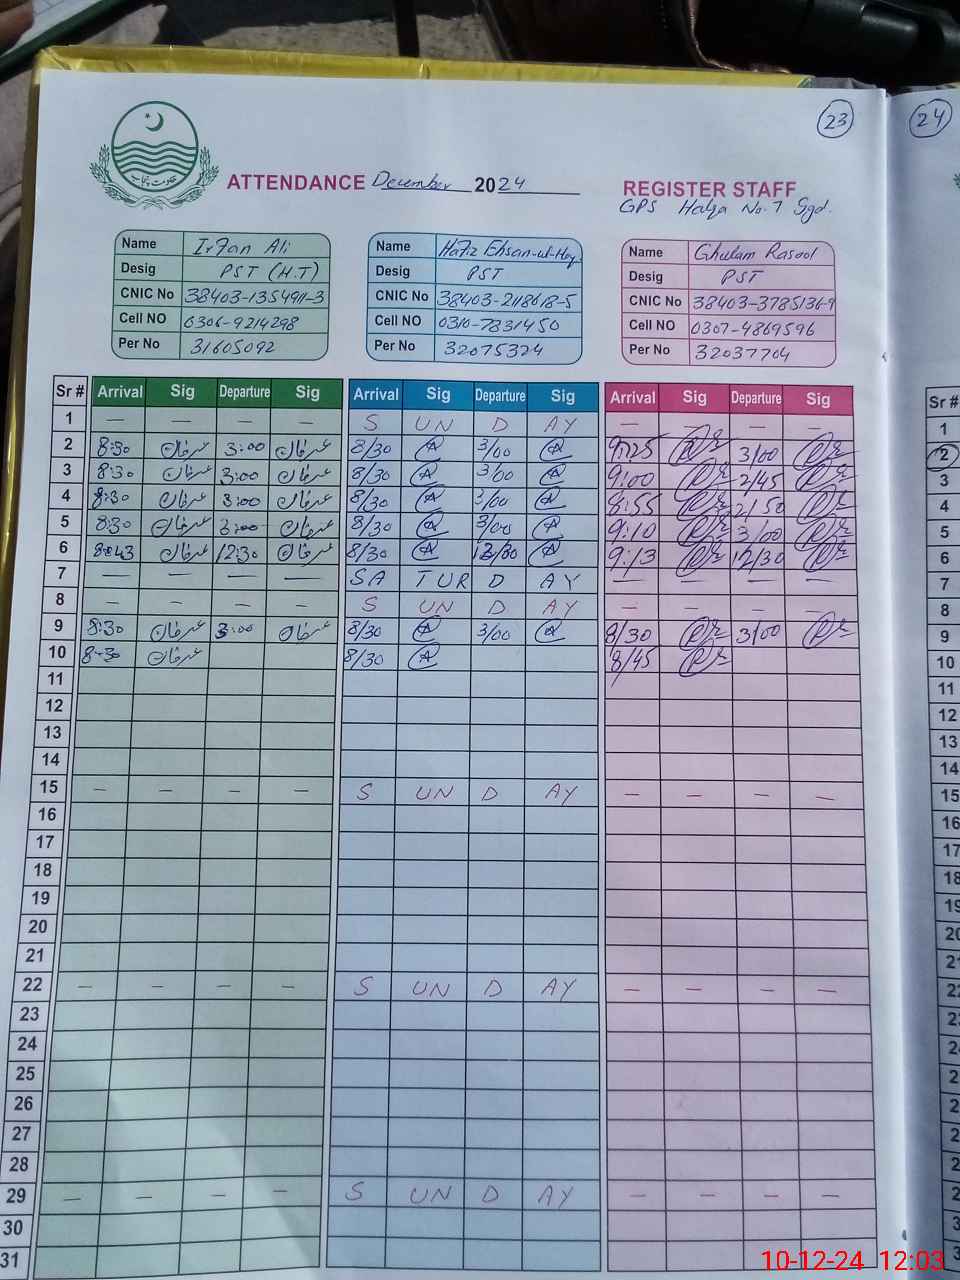 23
24
حکومت پنجاب
ATTENDANCE December 2024 REGISTER STAFF
GPS Halqa No. 7 Sgd.
Name Irfan Ali Name Hafiz Ehsan-ul-Haq Name Ghulam Rasool
Desig PST (H.T) Desig PST Desig PST
CNIC No 38403-1354911-3 CNIC No 38403-2118618-5 CNIC No 38403-3785136-9
Cell NO 0306-9214298 Cell NO 0310-7831450 Cell NO 0307-4869596
Per No 31605092 Per No 32075324 Per No 32037704
Sr # Arrival Sig Departure Sig Arrival Sig Departure Sig Arrival Sig Departure Sig Sr #
1 — — — — S UN D AY — — — — 1
2 8:30 عرفان 3:00 عرفان 8/30 3/00 9:25 3/00 2
3 8:30 عرفان 3:00 عرفان 8/30 3/00 9:00 2/45 3
4 8:30 عرفان 3:00 عرفان 8/30 3/00 8:55 2/50 4
5 8:30 عرفان 3:00 عرفان 8/30 3/00 9:10 3/00 5
6 8:43 عرفان 12:30 عرفان 8/30 12/30 9:13 12/30 6
7 — — — — SA TUR D AY — — — — 7
8 — — — — S UN D AY — — — — 8
9 8:30 عرفان 3:00 عرفان 8/30 3/00 8/30 3/00 9
10 8:30 عرفان 8/30 8/45 10
11 11
12 12
13 13
14 14
15 — — — — S UN D AY — — — — 15
16 16
17 17
18 18
19 19
20 20
21 21
22 — — — — S UN D AY — — — — 22
23 23
24
25
26
27
28
29 — — — — S UN D AY — — — —
30
31
10-12-24 12:03